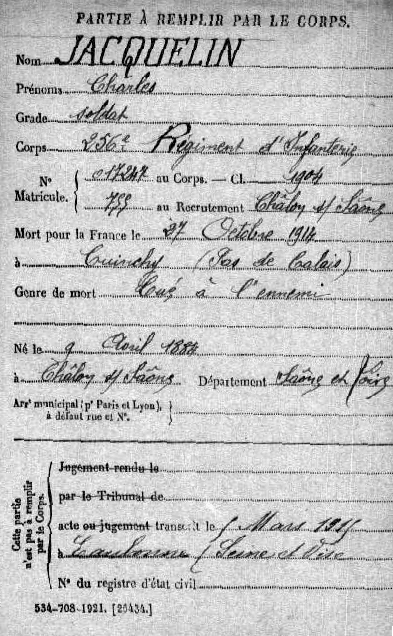 PARTIE À REMPLIR PAR LE CORPS.
Nom JACQUELIN
Prénoms Charles
Grade soldat
Corps 256e Régiment d'Infanterie
N° Matricule. 017247 au Corps. — Cl. 1904
799 au Recrutement Châlon s/ Saône
Mort pour la France le 27 Octobre 1914
à Cuinchy (Pas de Calais)
Genre de mort Tué à l'ennemi
Né le 9 Avril 1884
à Châlon s/ Saône Département Saône et Loire
Arrt municipal (pr Paris et Lyon), à défaut rue et N°.
Cette partie n'est pas à remplir par le Corps.
Jugement rendu le
par le Tribunal de
acte ou jugement transcrit le Mars 1915
à (Seine et Oise
N° du registre d'état civil
534-708-1921. [26434.]